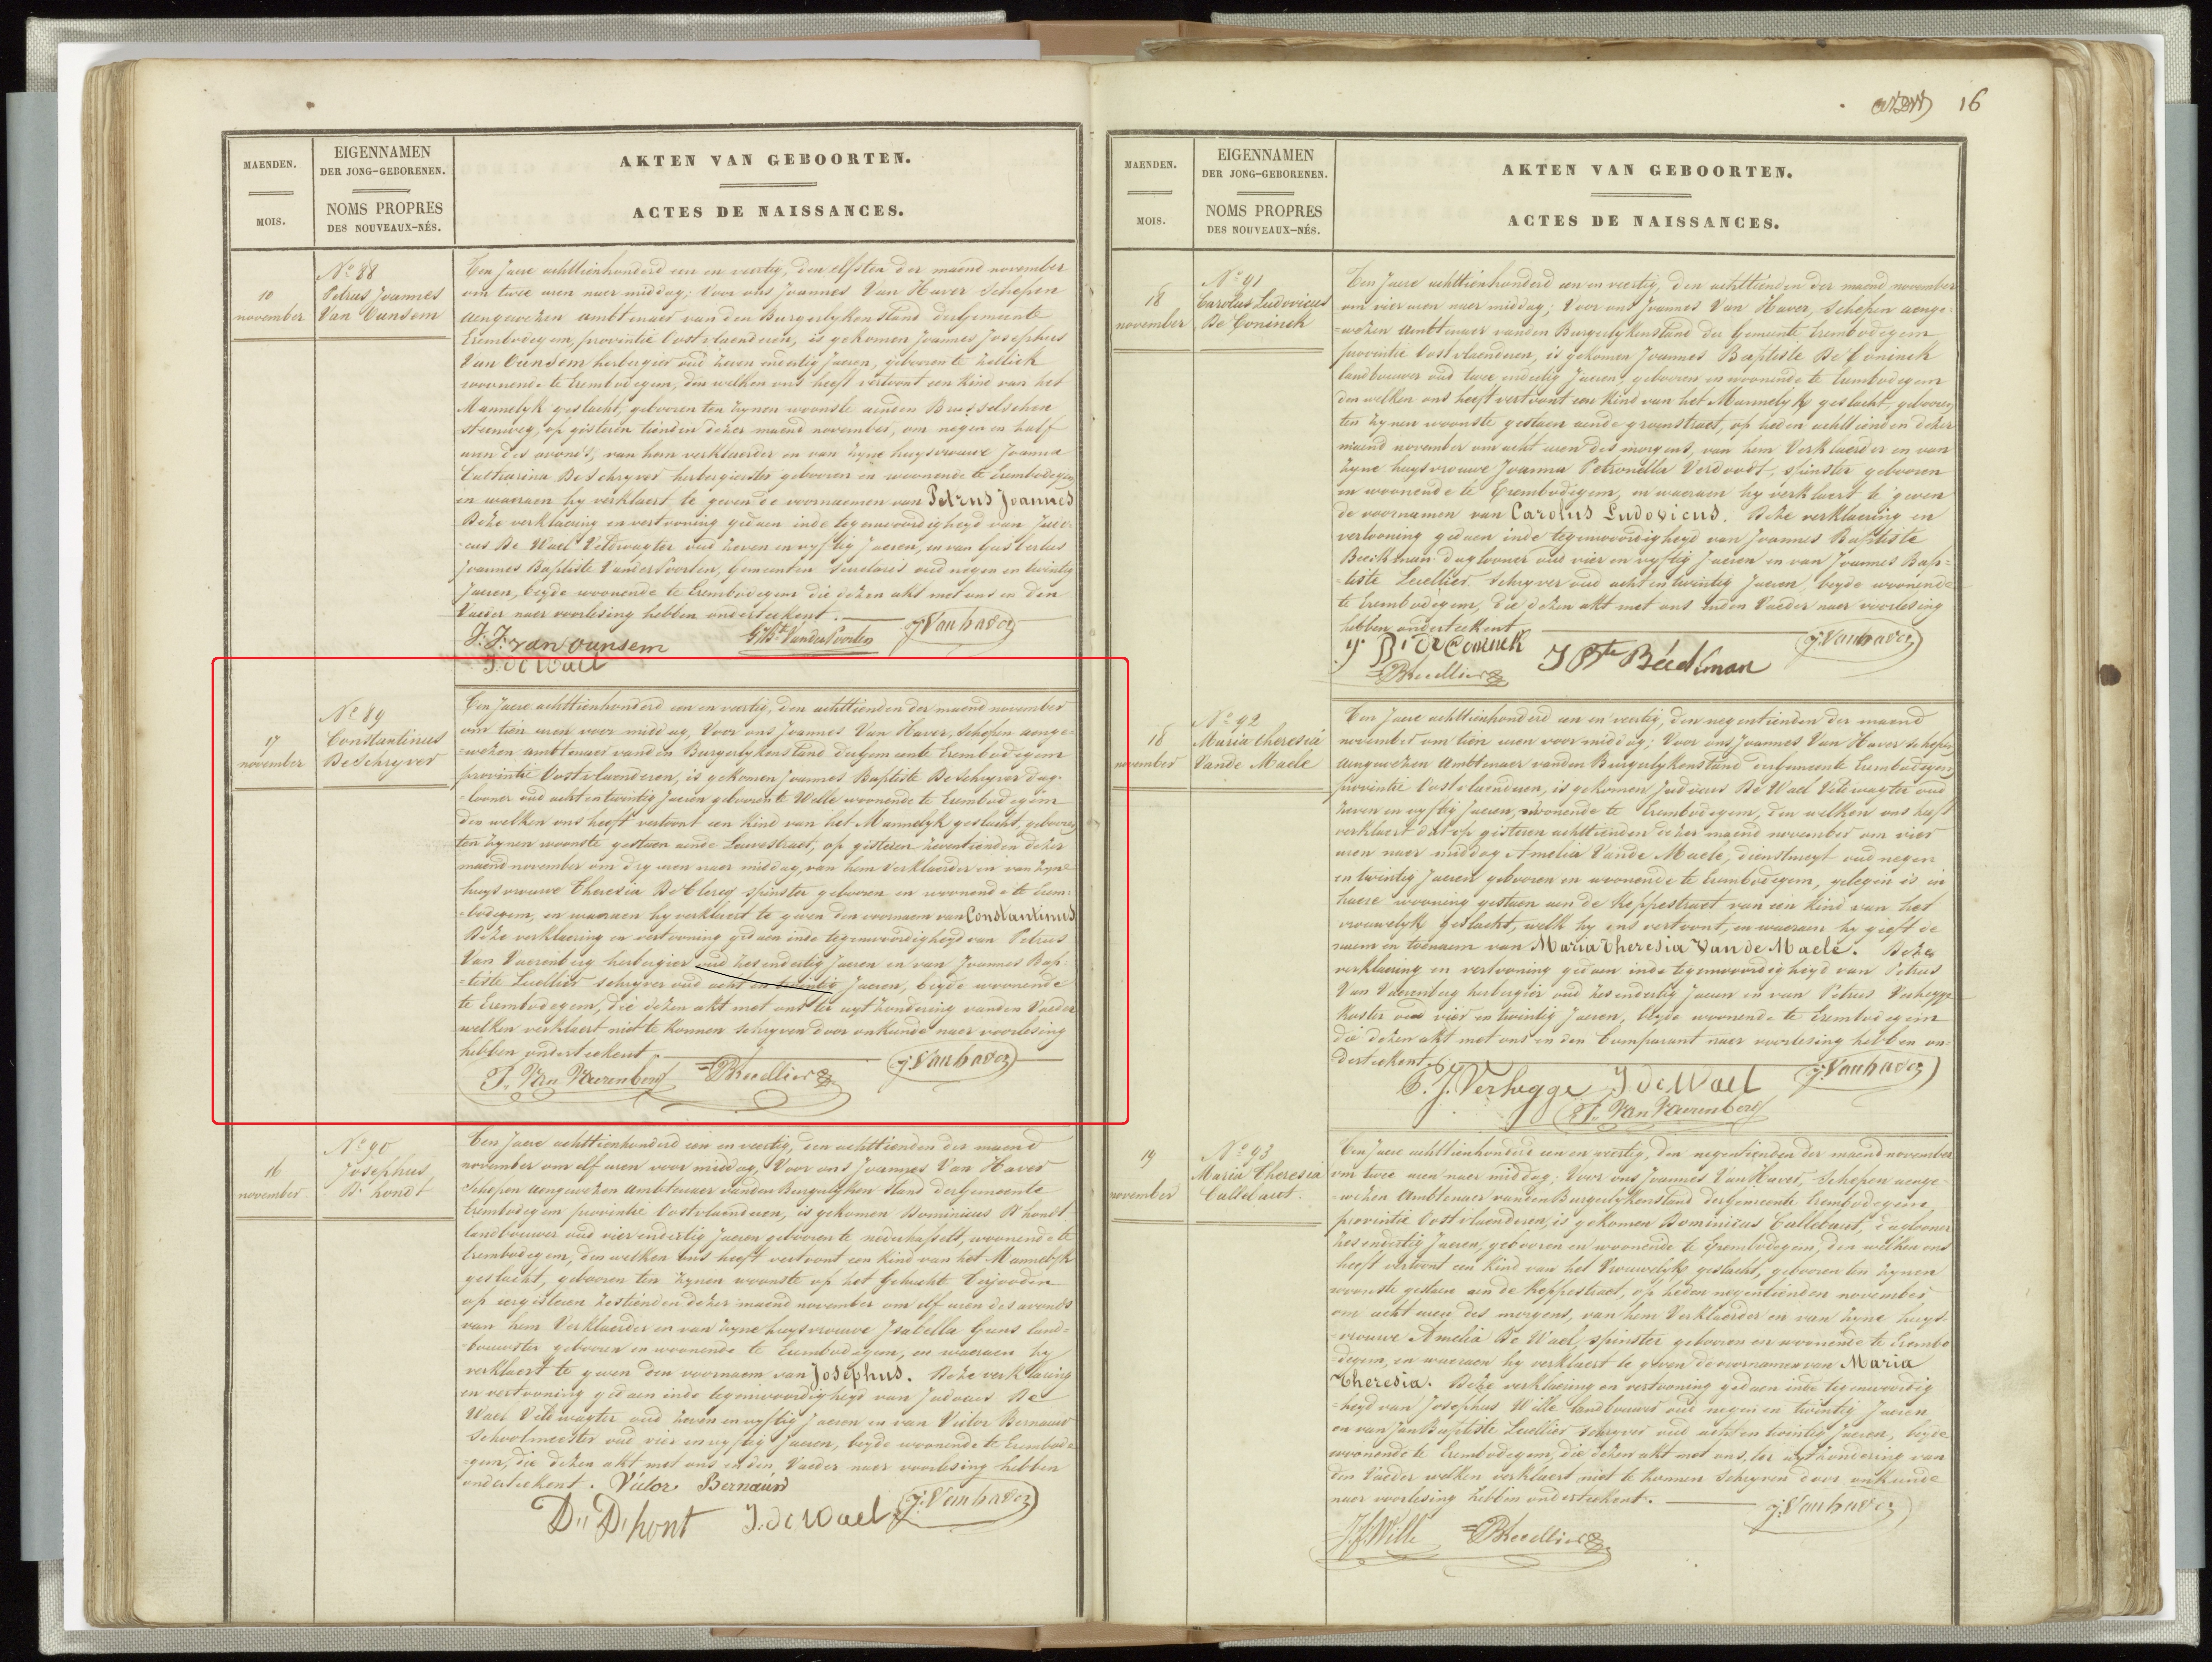 16
MAENDEN.
MOIS.
EIGENNAMEN
DER JONG-GEBORENEN.
NOMS PROPRES
DES NOUVEAUX-NÉS.
AKTEN VAN GEBOORTEN.
ACTES DE NAISSANCES.
10
november
No 88
Petrus Joannes
Van Ounsem
Ten Jaere achttienhonderd een en veertig, den elfsten der maend november
om twee uren naer middag; Voor ons Joannes Van Haver Schepen
aengewezen ambtenaer van den Burgerlyken stand der Gemeente
Erembodegem, provintie Oostvlaenderen, is gekomen Joannes Josephus
Van Ounsem herbergier oud zeven en dertig Jaeren, geboren te Zellick
woonende te Erembodegem, den welken ons heeft vertoont een kind van het
Mannelyk geslacht, gebooren ten zynen woonste aenden Brusselschen
steenweg, op gisteren tienden dezer maend november, om negen en half
uren des avonds, van hem verklaerder en van zyne huysvrouwe Joanna
Catharina De Schryver herbergierster gebooren en woonende te Erembodegem
en waeraen hy verklaert te geven de voornaemen van Petrus Joannes
Deze verklaering en vertooning gedaen inde tegenwoordigheyd van Judo-
-cus De Wael Veldwagter oud zeven en vyftig Jaeren, en van Gisbertus
Joannes Baptiste Vander Poorten, Gemeenten Secretaris oud negen en twintig
Jaeren, beyde woonende te Erembodegem die dezen akt met ons en den
Vaeder naer voorlesing hebben onderteekent.
J: J: van ounsem
G Bte VanderPoorten
J: Vanhaver
J. de Wael
17
november
No 89
Constantinus
De Schryver
Ten Jaere achttienhonderd een en veertig, den achttienden der maend november
om tien uren voor middag, Voor ons Joannes Van Haver, Schepen aenge-
-wezen ambtenaer vanden Burgerlykenstand der Gemeente Erembodegem
provintie Oostvlaenderen, is gekomen Joannes Baptiste De Schryver dag-
-looner oud acht en twintig Jaeren gebooren te Welle woonende te Erembodegem
den welken ons heeft vertoont een kind van het Mannelyk geslacht, gebooren
ten zynen woonste gestaen aende Leuvestraet, op gisteren zeventienden dezer
maend november om dry uren naer middag, van hem Verklaerder en van zyne
huysvrouwe Theresia De Clercq spinster gebooren en woonende te Erem-
-bodegem, en waeraen hy verklaert te geven den voornaem van Constantinus
Deze verklaering en vertooning gedaen inde tegenwoordigheyd van Petrus
Van Vaerenberg herbergier oud zes en dertig Jaeren en van Joannes Bap-
-tiste Leellier schryver oud acht en twintig Jaeren, beyde woonende
te Erembodegem, die dezen akt met ons ter uytzondering vanden Vaeder
welken verklaert niet te konnen schryven door onkunde naer voorlesing
hebben onderteekent
P. Van Vaerenberg
JBLeellier
J: Vanhaver
16
november
No 90
Josephus
D'hondt
Ten Jaere achttienhonderd een en veertig, den achttienden der maend
november om elf uren voor middag, Voor ons Joannes Van Haver
Schepen aengewezen ambtenaer vanden Burgerlyken stand der Gemeente
Erembodegem provintie Oostvlaenderen, is gekomen Dominicus D'hondt
landbouwer oud vier en dertig Jaeren gebooren te nederhasselt, woonende te
Erembodegem, den welken ons heeft vertoont een kind van het Mannelyk
geslacht, gebooren ten zynen woonste op het Gehucht Terjooden
op eergisteren zestienden dezer maend november om elf uren des avonds
van hem Verklaerder en van zyne huysvrouwe Isabella Guns land-
-bouwster gebooren en woonende te Erembodegem, en waeraen hy
verklaert te geven den voornaem van Josephus. Deze verklaering
en vertooning gedaen inde tegenwoordigheyd van Judocus De
Wael Veldwagter oud zeven en vyftig Jaeren en van Victor Bernauw
Schoolmeester oud vier en vyftig Jaeren, beyde woonende te Erembode-
-gem, die dezen akt met ons en den Vaeder naer voorlesing hebben
onderteekent. Victor Bernauw
D" D'hont
J. de Wael
J: Vanhaver
MAENDEN.
MOIS.
EIGENNAMEN
DER JONG-GEBORENEN.
NOMS PROPRES
DES NOUVEAUX-NÉS.
AKTEN VAN GEBOORTEN.
ACTES DE NAISSANCES.
18
november
No 91
Carolus Ludovicus
De Coninck
Ten Jaere achttienhonderd een en veertig, den achttienden der maend november
om vier uren naer middag; Voor ons Joannes Van Haver, Schepen aenge-
-wezen Ambtenaer vanden Burgerlykenstand der Gemeente Erembodegem
provintie Oostvlaenderen, is gekomen Joannes Baptiste De Coninck
landbouwer oud twee en dertig Jaeren, gebooren en woonende te Erembodegem
den welken ons heeft vertoont een kind van het Mannelyk geslacht, gebooren
ten zynen woonste gestaen aende groenstraet, op heden achttienden dezer
maend november om acht uren des morgens, van hem Verklaerder en van
zyne huysvrouwe Joanna Petronella Verdoodt, spinster gebooren
en woonende te Erembodegem, en waeraen hy verklaert te geven
de voornamen van Carolus Ludovicus. Deze verklaering en
vertooning gedaen inde tegenwoordigheyd van Joannes Baptiste
Beeckman daglooner oud vier en vyftig Jaeren en van Joannes Bap-
-tiste Leellier Schryver oud acht en twintig Jaeren, beyde woonende
te Erembodegem, die dezen akt met ons enden Vaeder naer voorlesing
hebben onderteekent
J: Bt de Coninck
J Bte Béeckman
J: Vanhaver
JBLeellier
18
november
No 92
Maria Theresia
Vande Maele
Ten Jaere achttienhonderd een en veertig, den negentienden der maend
november om tien uren voor middag; Voor ons Joannes Van Haver Schepen
aengewezen Ambtenaer vanden Burgerlykenstand der Gemeente Erembodegem
provintie Oostvlaenderen, is gekomen Judocus De Wael Veldwagter oud
zeven en vyftig Jaeren, woonende te Erembodegem, den welken ons heeft
verklaert dat op gisteren achttienden dezer maend november om vier
uren naer middag Amelia Vande Maele, dienstmeyt oud negen
en twintig Jaeren gebooren en woonende te Erembodegem, gelegen is in
haere wooning gestaen aen de Keppestraet van een kind van het
vrouwelyk geslacht, welk hy ons vertoont, en waeraen hy geeft de
naem en toenaem van Maria Theresia Van de Maele. Deze
verklaering en vertooning gedaen inde tegenwoordigheyd van Petrus
Van Vaerenberg herbergier oud zes en dertig Jaeren en van Petrus Verhegge
Koster oud vier en twintig Jaeren, beyde woonende te Erembodegem
die dezen akt met ons en den Comparant naer voorlesing hebben on-
-derteekent
J. Verhegge
J de Wael
J: Vanhaver
P. Van Vaerenberg
19
november
No 93
Maria Theresia
Callebaut
Ten Jaere achttienhonderd een en veertig, den negentienden der maend november
om twee uren naer middag; Voor ons Joannes Van Haver, Schepen aenge-
-wezen Ambtenaer vanden Burgerlykenstand der Gemeente Erembodegem
provintie Oostvlaenderen, is gekomen Dominicus Callebaut, daglooner
zes en dertig Jaeren, gebooren en woonende te Erembodegem, den welken ons
heeft vertoont een kind van het Vrouwelyk geslacht, gebooren ten zynen
woonste gestaen aen de Keppestraet, op heden negentienden november
om acht uren des morgens, van hem Verklaerder en van zyne huys-
-vrouwe Amelia De Wael, spinster gebooren en woonende te Erembo-
-degem, en waeraen hy verklaert te geven de voornamen van Maria
Theresia. Deze verklaering en vertooning gedaen inde tegenwoordig-
-heyd van Josephus Wille landbouwer oud negen en twintig Jaeren
en van Jan Baptiste Leellier schryver oud acht en twintig Jaeren, beyde
woonende te Erembodegem, die dezen akt met ons, ter uytzondering van
den Vaeder welken verklaert niet te konnen schryven door onkunde
naer voorlesing hebben onderteekent.
J: Vanhaver
J.f. Wille
JBLeellier